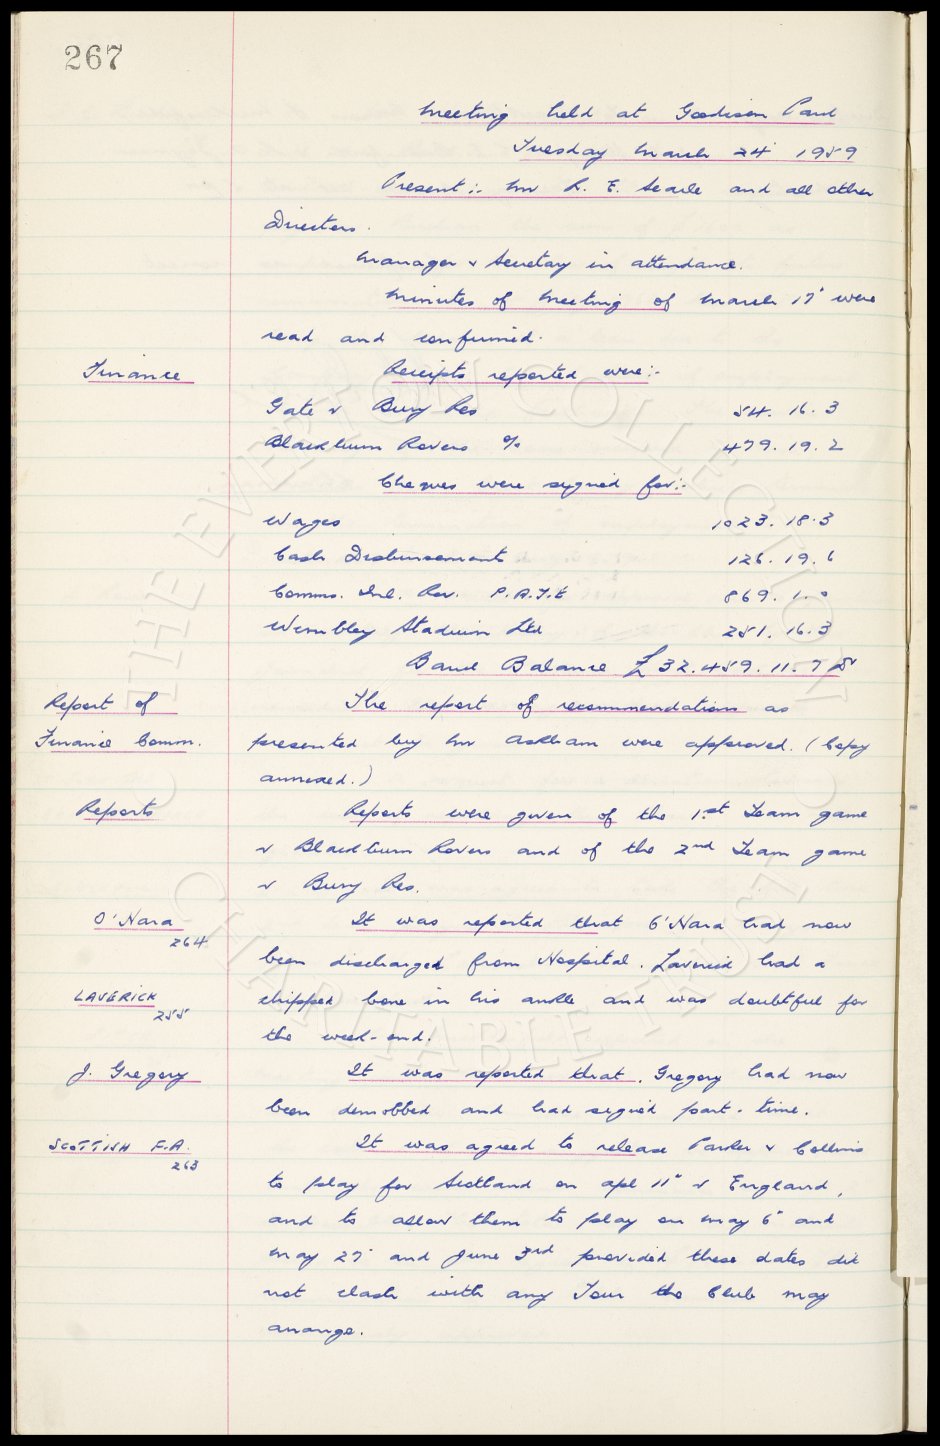 267
Meeting held at Goodison Park
Tuesday March 24" 1959
Present:- Mr R. E. Searle and all other
Directors.
Manager & Secretary in attendance.
Minutes of Meeting of March 17" were
read and confirmed.
Finance
Receipts reported were:-
Gate v Bury Res 54. 16. 3
Blackburn Rovers % 479. 19. 2
Cheques were signed for:-
Wages 1023. 18. 3
Cash Disbursements 126. 19. 6
Comms. Inl. Rev. P.A.Y.E 869. 1. 0
Wembley Stadium Ltd 251. 16. 3
Bank Balance £32.459. 11. 7
Report of
Finance Comm.
The report of recommendations as
presented by Mr Askham were approved. (Copy
annexed.)
Reports
Reports were given of the 1st Team game
v Blackburn Rovers and of the 2nd Team game
v Bury Res.
O'Hara
264
It was reported that O'Hara had now
been discharged from Hospital. Laverick had a
LAVERICK
255
chipped bone in his ankle and was doubtful for
the week-end.
J. Gregory
It was reported that Gregory had now
been demobbed and had signed part-time.
SCOTTISH F.A.
263
It was agreed to release Parker & Collins
to play for Scotland on Apl 11" v England,
and to allow them to play on May 6" and
May 27" and June 3rd provided these dates did
not clash with any Tour the Club may
arrange.
© THE EVERTON COLLECTION
CHARITABLE TRUST